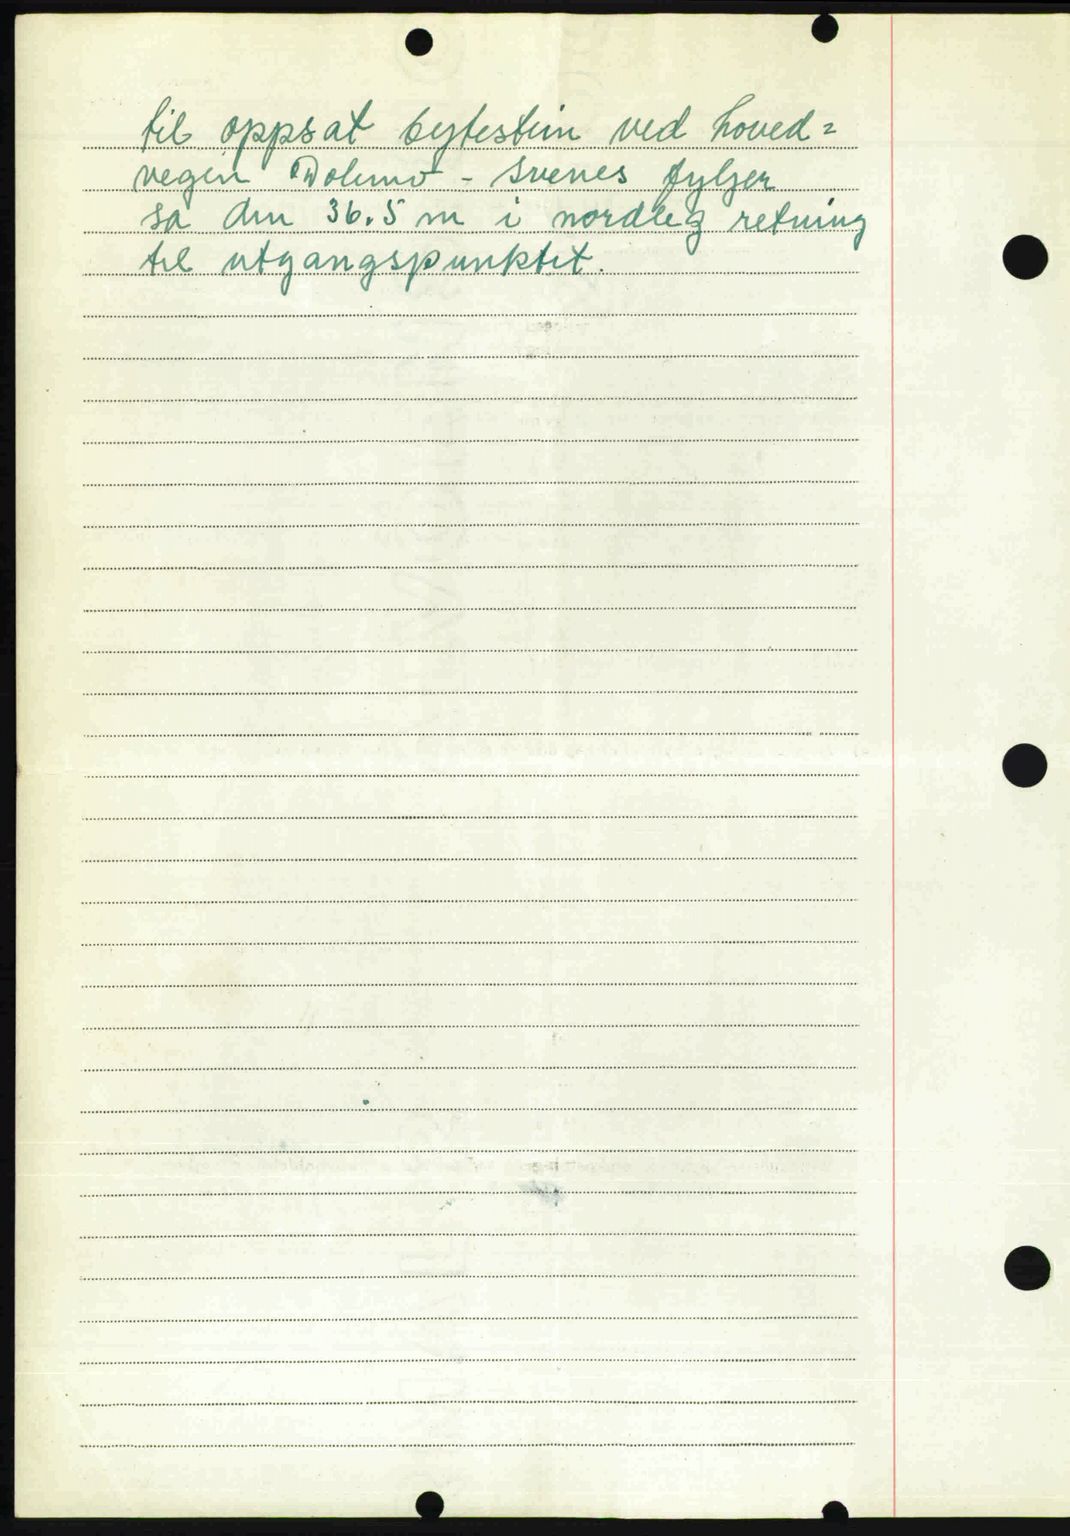 til oppsat bytestein ved hoved=
vegen Dolemo - Svenes fylger
sa den 36.5 m i nordleg retning
til utgangspunktet.